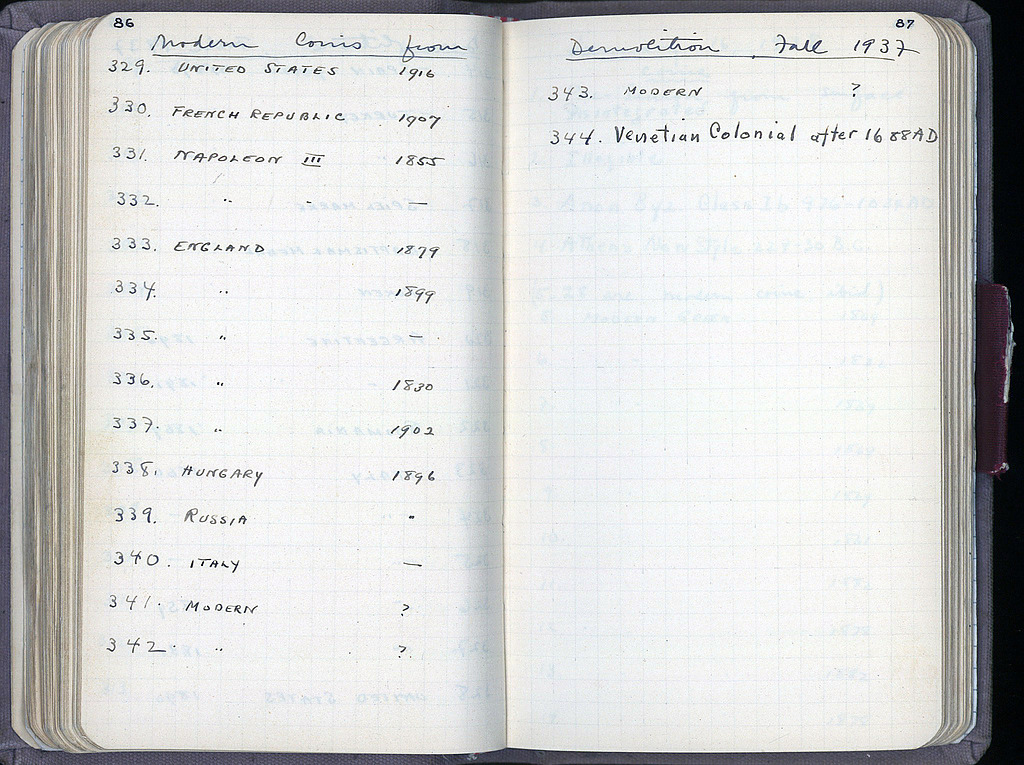 86
Modern Coins from
329. UNITED STATES 1916
330. FRENCH REPUBLIC 1907
331. NAPOLEON III 1855
332. " —
333. ENGLAND 1879
334. " 1899
335. "
336. " 1830
337. " 1902
338. HUNGARY 1896
339. RUSSIA "
340. ITALY —
341. MODERN ?
342. " ?
87
Demolition, Fall 1937
343. MODERN ?
344. Venetian Colonial after 1688 AD